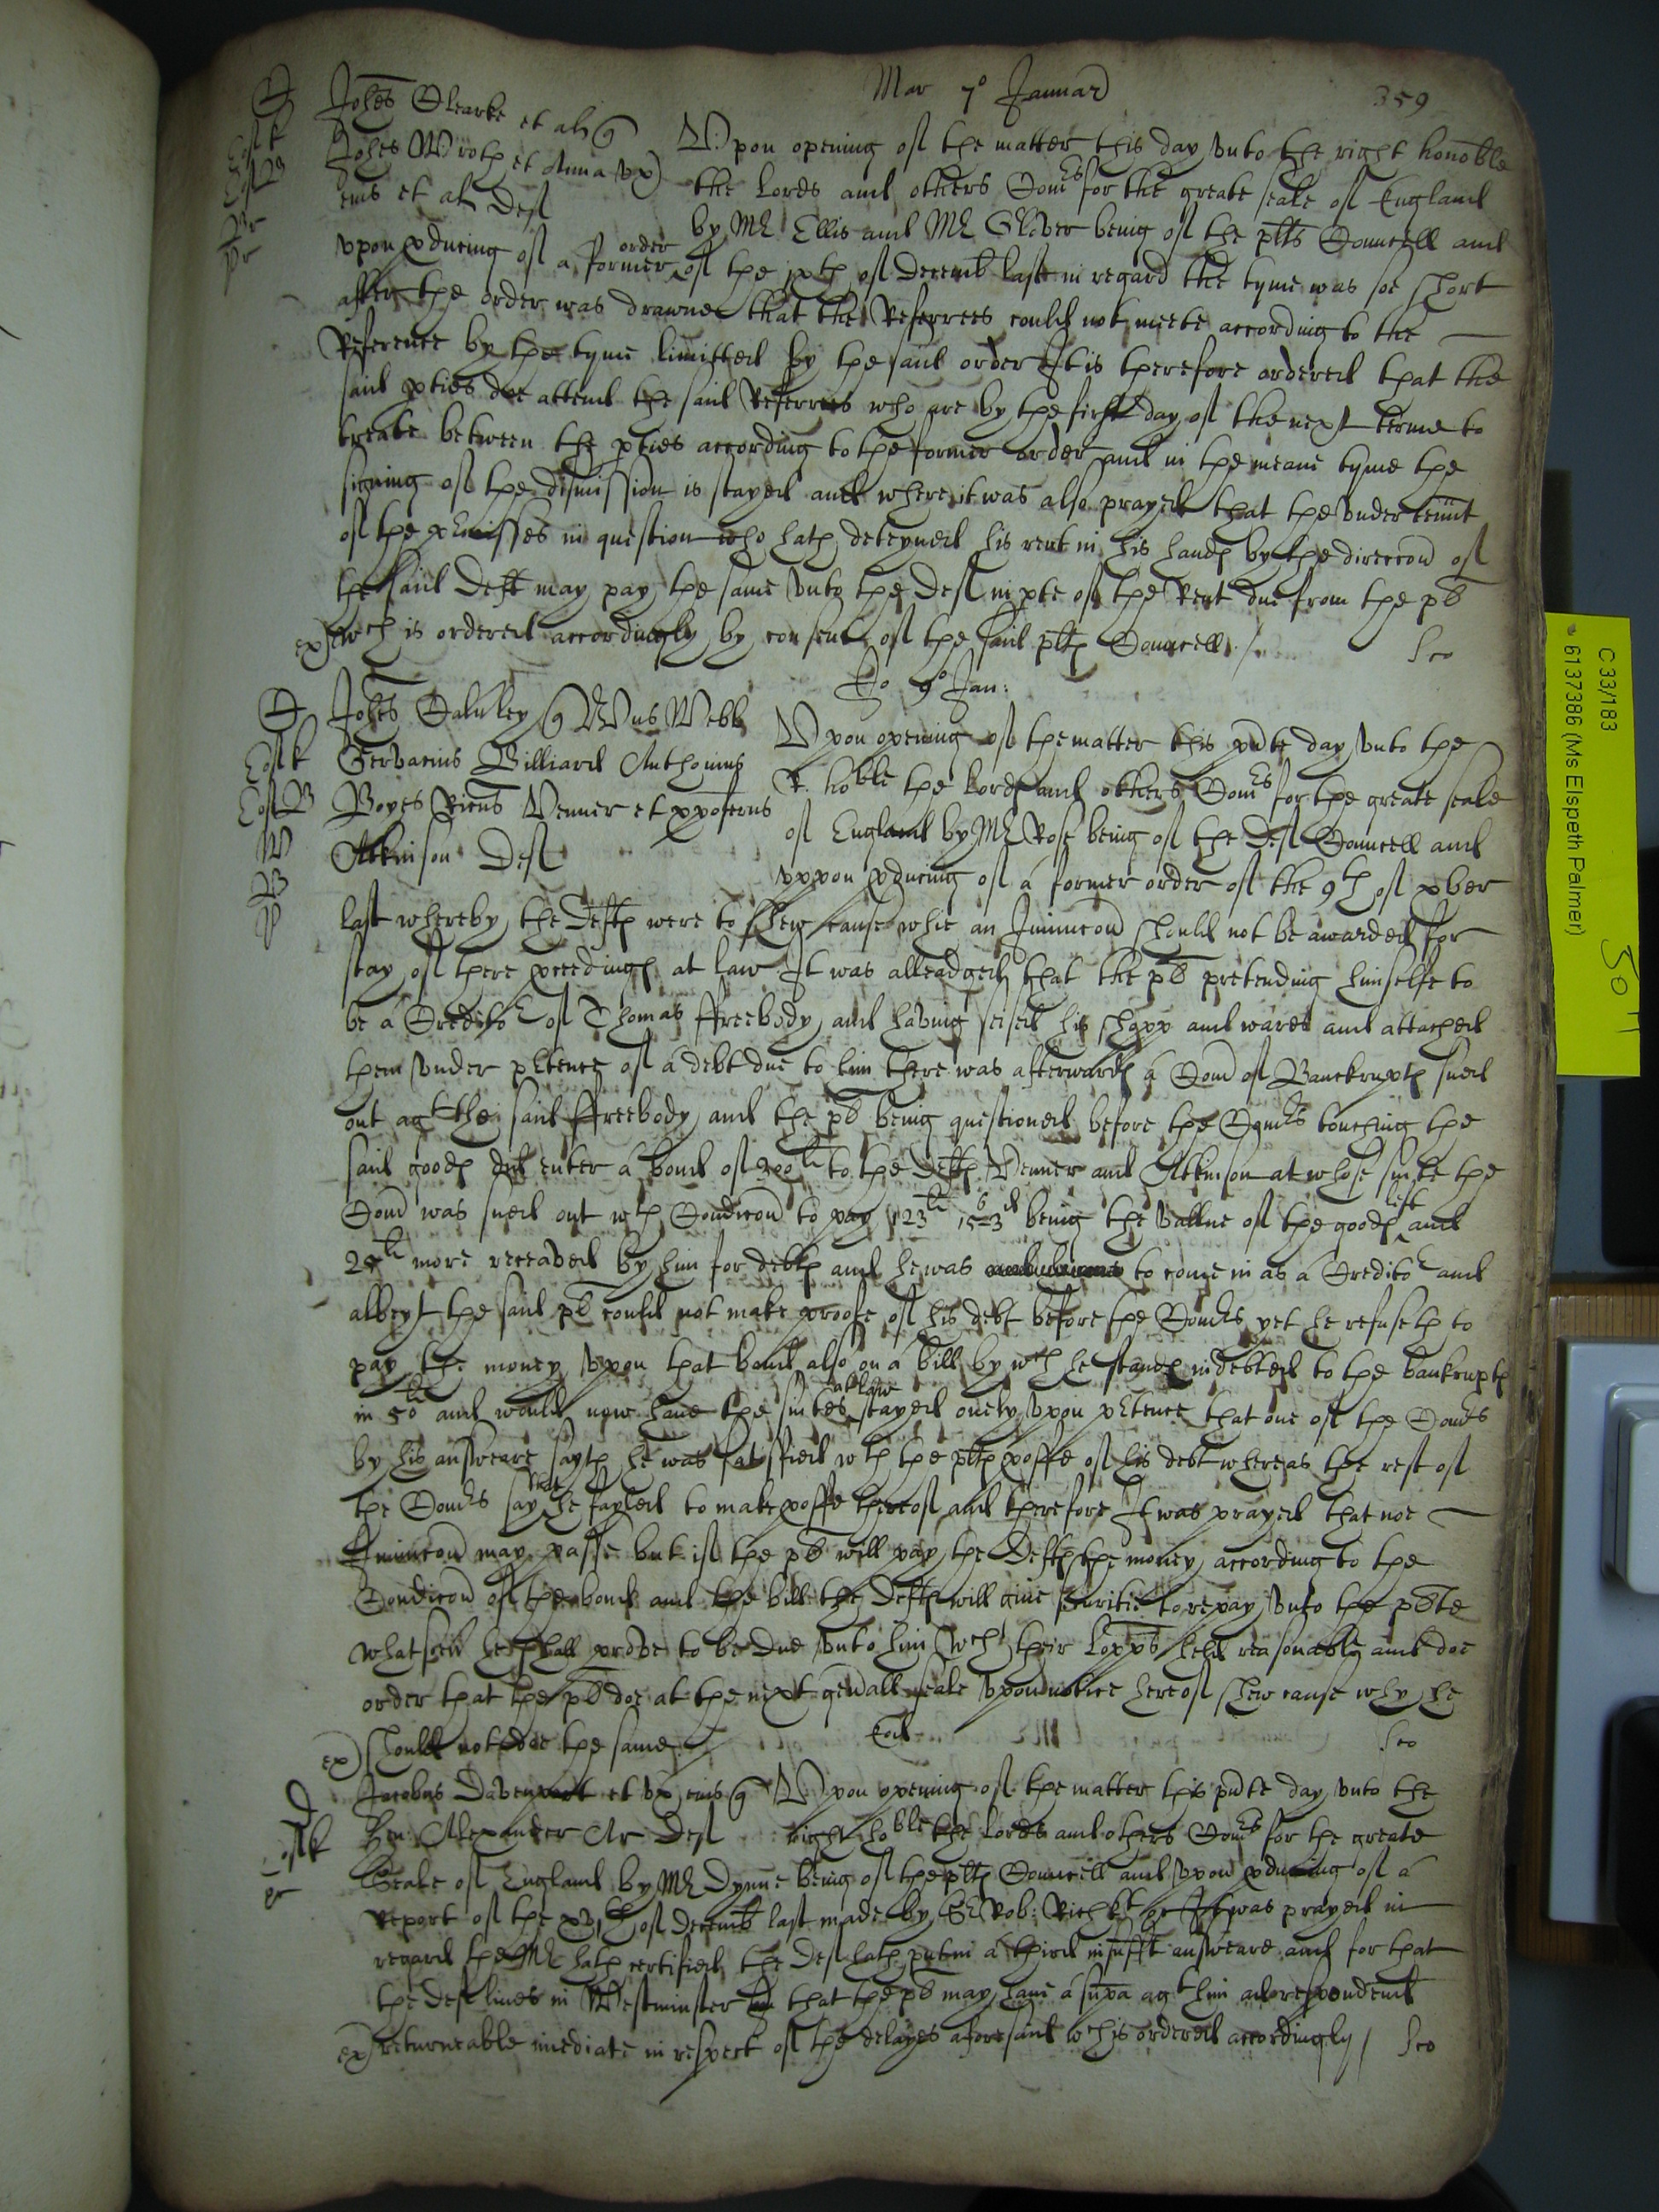 Mar 7o Januar
359
C Johes Clearke et al q
Johes Wroth et Anna vx Vpon opening of the matter this day vnto the right honoble
eius et al Def the Lords and others Comrs for the greate seale of England
by Mr Ellis and Mr Glover being of the plts Councell and
vpon pducing of a former order of the ixth of Decemb last in regard the tyme was soe short
after the order was drawne that the Referrees could not meete according to the
Reference by the tyme limitted by the said order It is therefore ordered that the
said pties doe attend the said Referrees who are by the first day of the next terme to
treate betweene the pties according to the former order and in the meane tyme the
signing of the dismission is stayed and where it was also prayed that the vnder tennt
of the pmisses in question who hath deteyned his rent in his hands by the direccon of
the said Deft may pay the same vnto the Def in pte of the Rent due from the pl
ex wch is ordered accordingly by consent of the said plts Councell
Jo 9o Jan:
C Johes Caluley q Wus Webb
Gervacius Billiard Anthonius Vpon opening of the matter this pnte day vnto the
Boyes Ricus Venner et xpoferus R. hoble the Lords and others Comrs for the greate seale
Atkinson Def of England by Mr Rose being of the Def Councell and
vppon pducing of a former order of the 9th of xber
last whereby the Defts were to shew cause whie an Iniunccon should not be awarded for
stay of there pceedings at law It was alleadged that the pl pretending himselfe to
be a Creditor of Thomas ffreebody and having seised his shopp and wares and attached
them vnder ptence of a debt due to him there was afterwards a Com of Banckrupts sued
out agt the said ffreebody and the pl being questioned before the Comrs touching the
said goods did enter a bond of 200li to the Defts Venner and Atkinson at whose suite the
Com was sued out wth Condicon to pay 123li 15s 3d being the vallue of the goods left and
more receaved by him for debts and he was to come in as a Creditor and
albeyt the said pl could not make proofe of his debt before the Comrs yet he refuseth to
pay the money vpon that bond also on a bill by wch he stands indebted to the bankrupt
in 50li and would now have the suites at law stayed onely vpon ptence that one of the Comrs
by his answeare sayth he was satisfied wth the plts proffe of his debt whereas the rest of
the Comrs say that he fayled to make proffe thereof and therefore It was prayed that noe
Iniunccon may passe but if the pl will pay the Defts the money according to the
Condicon of the bond and the bill the Defts will give securitie to repay vnto the pl the
whatsoeuer he shall prove to be due vnto him wch their Lopps held reasonable and doe
order that the pl doe at the next genall seale vpon notice hereof shew cause why he
ex should not doe the same
Eod
Jacobus Davenport et vx eius q Vpon opening of the matter this pnte day vnto the
Hen: Alexander Ar Def right hoble the Lords and others Comrs for the greate
Seale of England by Mr Dynne being of the plts Councell and vpon pducing of a
Report of the xvith of Decemb last made by Sr Rob: Rich kt It was prayed in
regard the Mr hath certified the Def hath putt in a third insufft answeare and for that
the Def lives in Westminster that the pl may have a supa agt him ad respondend
ex returneable imediate in respect of the delayes aforesaid wch is ordered accordingly
C 33/183
6137386 (Ms Elspeth Palmer)